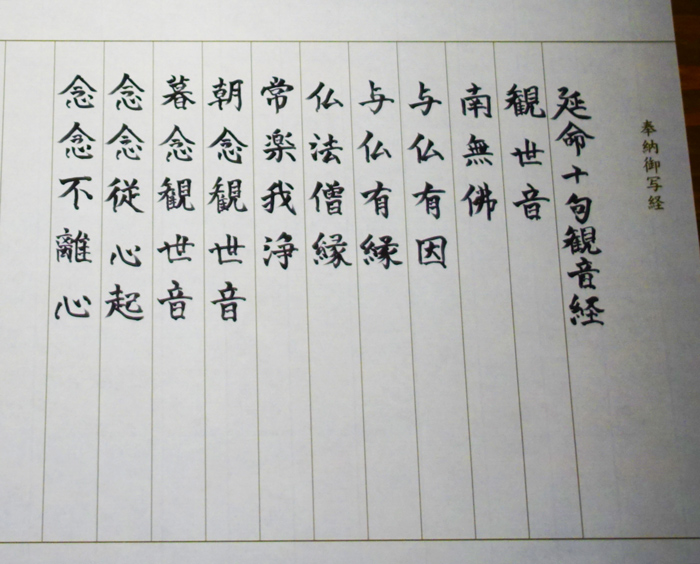 奉納御写経
延命十句観音経
観世音
南無佛
与仏有因
与仏有縁
仏法僧縁
常楽我浄
朝念観世音
暮念観世音
念念従心起
念念不離心